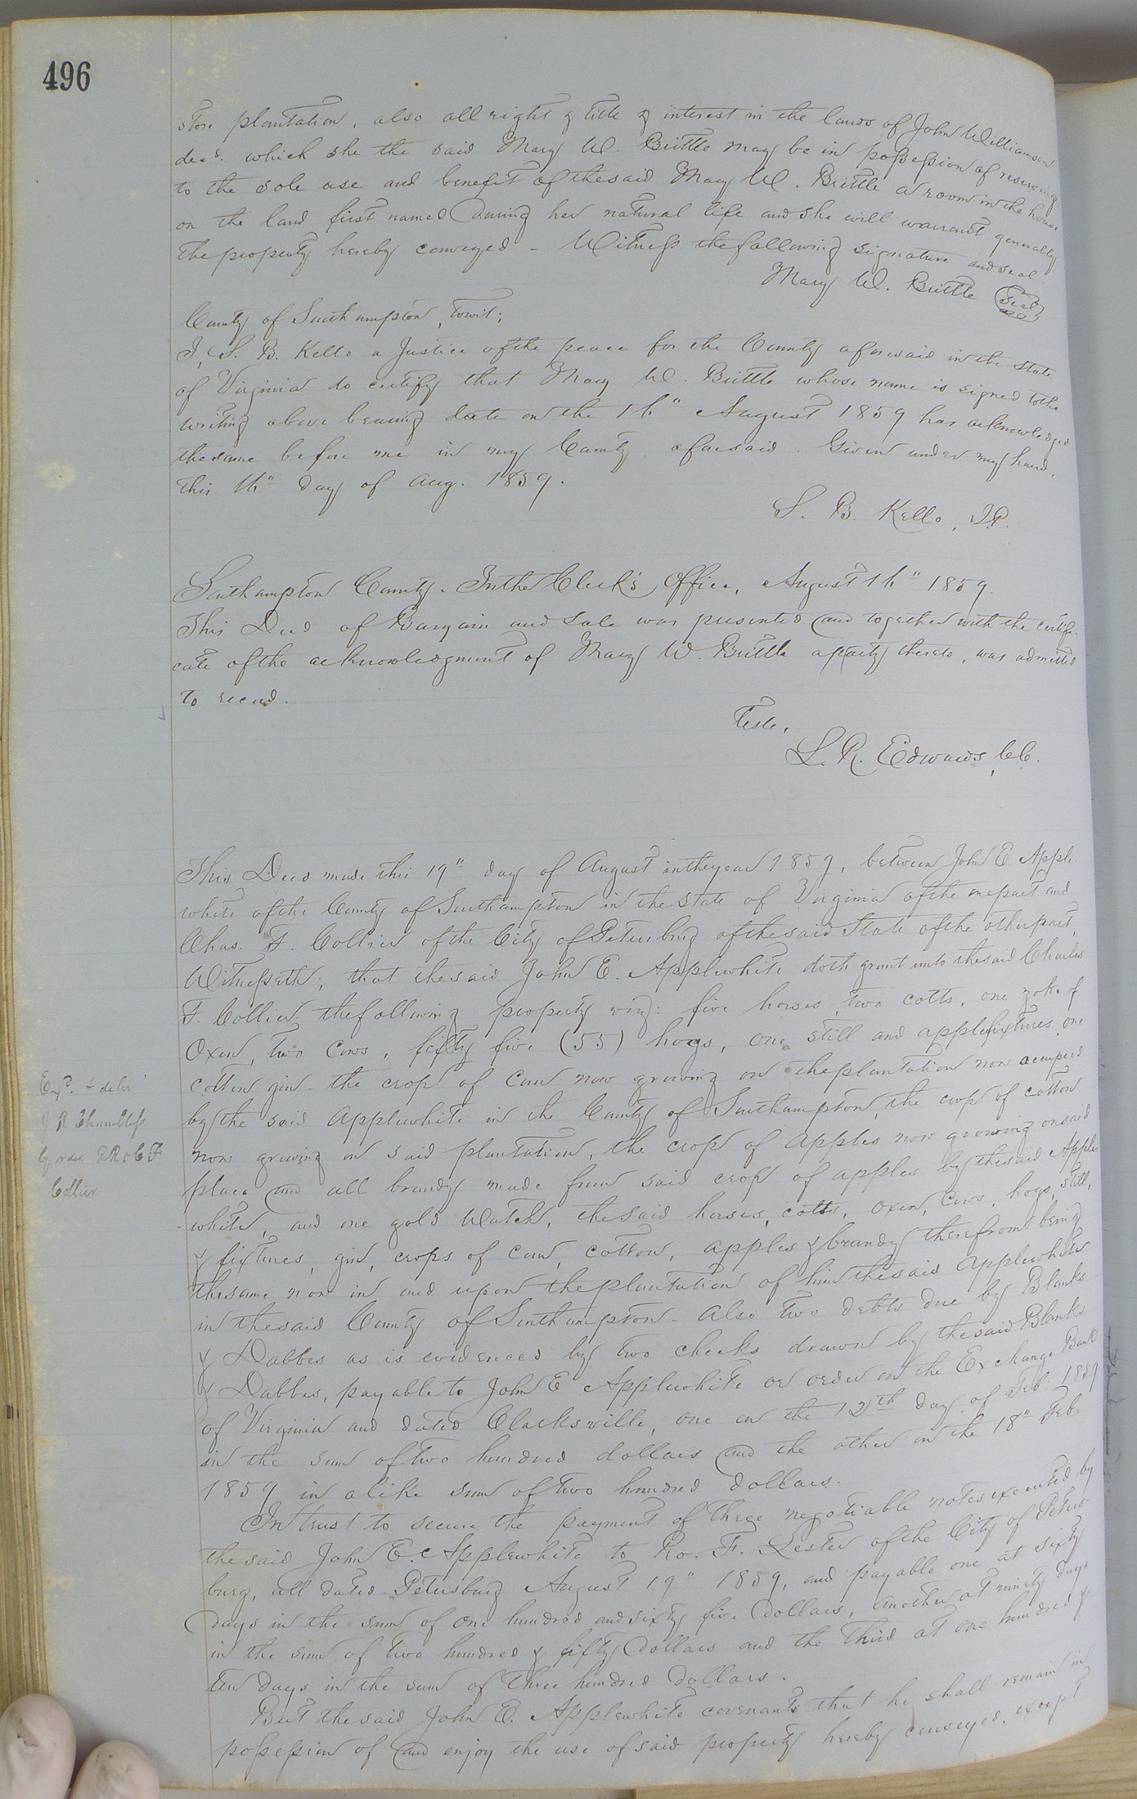 496
store plantation, also all right & title & interest in the lands of John Williamson
decd. which she the said Mary W. Brittle may be in possession of reserving
to the sole use and benefit of the said Mary W. Brittle a room in the house
on the land first named during her natural life and she will warrant generally
the property hereby conveyed - Witness the following signature and seal
Mary W. Brittle Seal
County of Southampton, towit;
I, S. B. Kello a Justice of the peace for the County aforesaid in the State
of Virginia do certify that Mary W. Brittle whose name is signed to the
writing above bearing date on the 16" August 1859 has acknowledged
the same before me in my County aforesaid. Given under my hand,
this 16" day of Aug. 1859.
S. B. Kello, J.P.
Southampton County. In the Clerk's Office, August 16" 1859.
This Deed of Bargain and Sale was presented and together with the certifi-
cate of the acknowledgment of Mary W. Brittle a party thereto, was admitted
to record.
Teste,
L. R. Edwards, C.C.
This Deed made this 19" day of August in the year 1859, between John E. Apple-
white of the County of Southampton in the State of Virginia of the one part and
Chas. F. Collier of the City of Petersburg of the said State of the other part,
Witnesseth; that the said John E. Applewhite doth grant unto the said Charles
F. Collier the following property viz: five horses, two colts, one yoke of
Oxen, two Cows, fifty five (55) hogs, one still and apple fixtures, one
cotton gin - the crop of corn now growing on the plantation now occupied
by the said Applewhite in the County of Southampton, the crop of cotton
now growing on said plantation, the crop of apples now growing on said
place and all brandy made from said crop of apples by the said Apple-
white, and one gold Watch, the said horses, colts, oxen, cows, hogs, still,
& fixtures, gin, crops of corn, cotton, apples & brandy therefrom being
the same now in and upon the plantation of him the said Applewhite
in the said County of Southampton - Also two debts due by Blanks
& Dabbs as is evidenced by two checks drawn by the said Blanks
& Dabbs, payable to John E Applewhite or order on the Exchange Bank
of Virginia and dated Clarksville, one on the 12th day of Feb. 1859
in the sum of two hundred dollars and the other on the 18" Feb.
1859 in a like sum of two hundred dollars.
In trust to secure the payment of three negotiable notes executed by
the said John E. Applewhite to Ro. F. Lester of the City of Peters-
burg, all dated Petersburg August 19" 1859, and payable one at sixty
days in the sum of one hundred and sixty five Dollars, another at ninety days
in the sum of two hundred & fifty Dollars and the third at one hundred &
ten days in the sum of three hundred dollars.
But the said John E. Applewhite covenants that he shall remain in
possession of and enjoy the use of said property hereby conveyed, except
Exd. & deld
J R Chambliss
by order
Collier